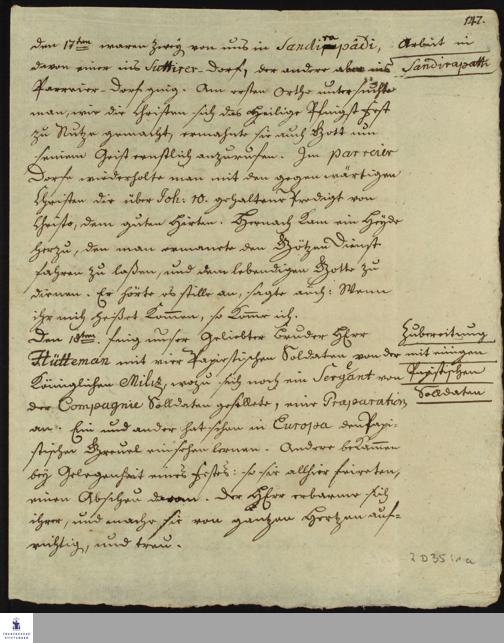 147.
den 17ten waren zwey von uns in Sandirapádi,
davon einer ins Suttirer-Dorf, der andere aber ins
Parreier-Dorf ging. Am ersten Orthe untersuchte
man, wie die Christen sich das Heilige Pfingst Fest
zu Nutze gemacht, ermahnte sie auch Gott um
seinem Geist ernstlich anzurufen. Im parreier
Dorfe wiederholte man mit den gegenwärtigen
Christen die über Joh: 10. gehaltene Predigt von
Christo, dem guten Hirten. Hernach kam ein Heyde
herzu, den man ermahnete den Götzen Dienst
fahren zu laßen, und dem lebendigen Gotte zu
dienen. Er hörte es stille an, sagte auch: Wenn
ihr mich heißet kommen, so komme ich.
Arbeit in
Sandirapatti
Den 18ten fing unser Geliebter Bruder HErr
Hütteman mit vier Papistischen Soldaten von der
Königlichen Militz, wozu sich noch ein Sergent von
der Compagnie Solldaten gesellete, eine Præparation
an. Ein und ander hat schon in Europa den Papi-
stischen Greuel einsehen lernen. Andere bekamen
bey Gelegenheit eines Festes: so sie allhier feireten,
einen Abscheu davon. Der HErr erbarme sich
ihrer, und mache sie von gantzen Hertzen auf-
richtig, und treu.
Zubereitung
mit einigen
Papistischen
Solldaten
2 D35
FRANCKESCHE
STIFTUNGEN